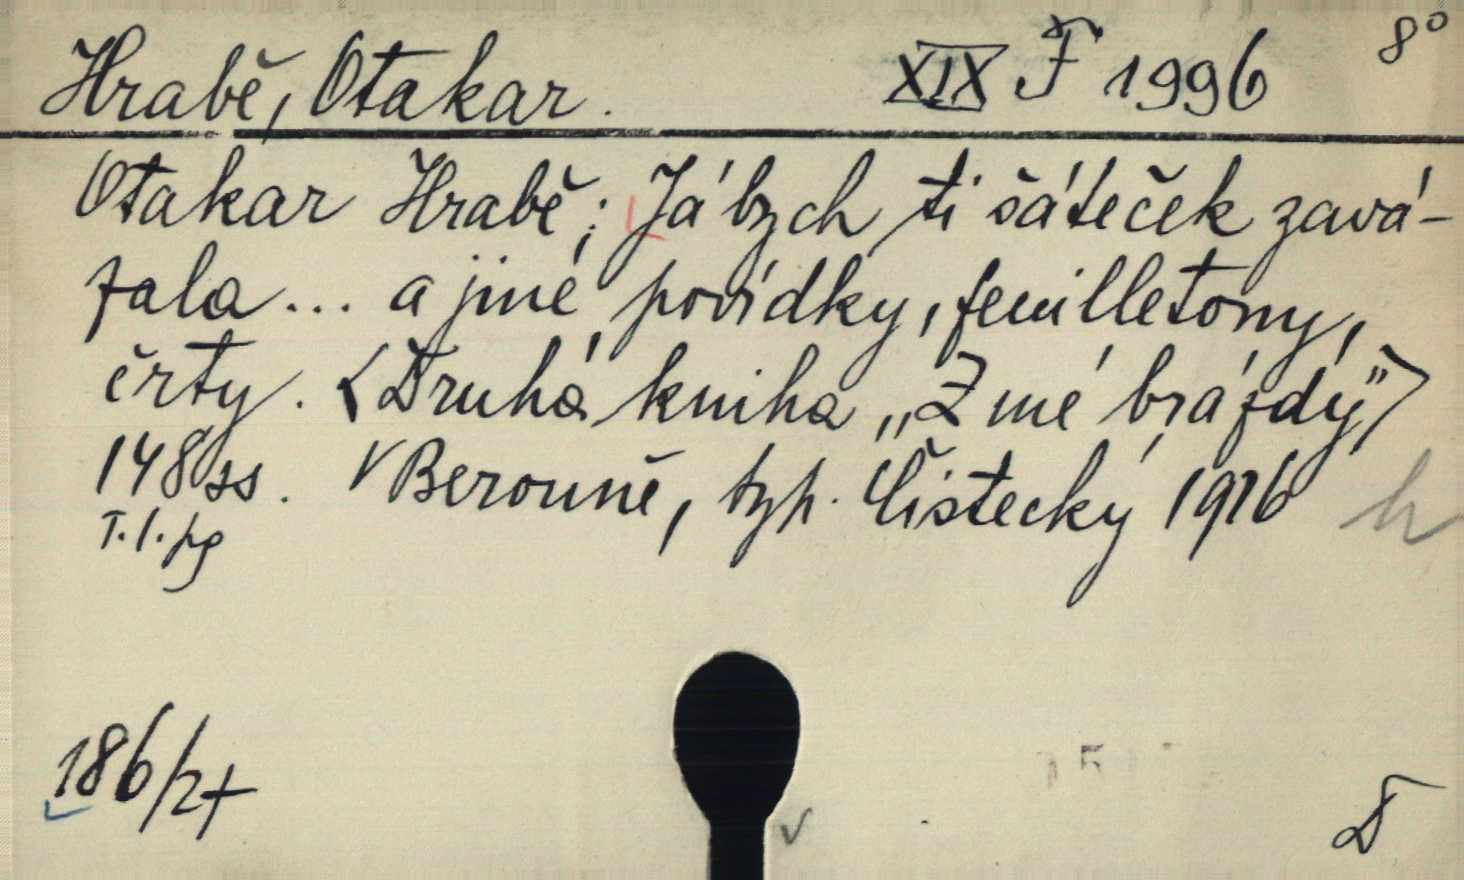 Hrabě, Otakar. XIX F 1996 8°
Otakar Hrabě: Já bych ti šáteček zavá-
zala... a jiné povídky, feuilletony,
črty. <Druhá kniha „Z mé brázdy">
148 ss. V Berouně, typ. Čistecký 1916
T. l. pg
186/27